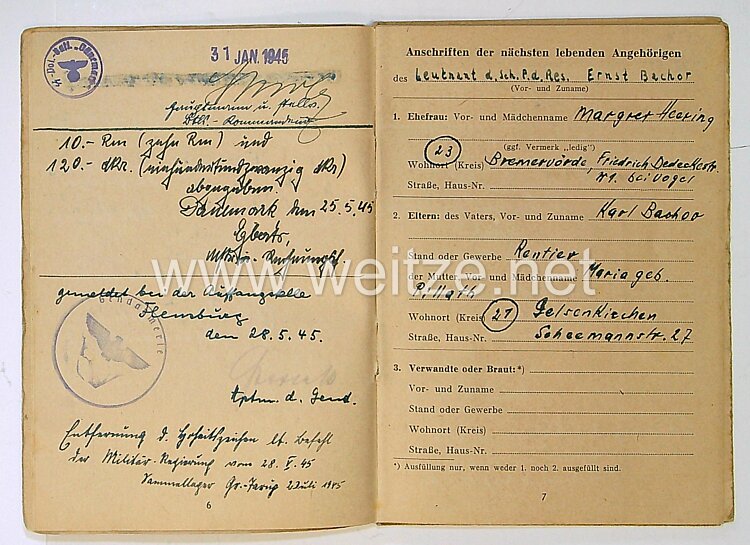 SS-Pol.-Batl. „Dänemark"
31 JAN. 1945
Hauptmann u. stellv.
Btls.-Kommandeur
10.- Rm (zehn Rm) und
120.- dKr. (einhundertundzwanzig dKr)
abgegeben.
Dänemark den 25.5.45
Eberts,
gemeldet bei der Auffangstelle
Flensburg
den 28.5.45.
Gendarmerie
Hptm. d. Gend.
Entfernung d. Hoheitszeichen lt. Befehl
der Militär-Regierung vom 28. V. 45
Sammellager Gr.-Jarup 2 Juli 1945
6
Anschriften der nächsten lebenden Angehörigen
des Leutnant d. Sch. P. d. Res. Ernst Bachor
(Vor- und Zuname)
1. Ehefrau: Vor- und Mädchenname Margret Heering
(ggf. Vermerk „ledig")
Wohnort (Kreis) 23 Bremervörde, Friedrich Dedeckestr.
Straße, Haus-Nr. bei Vogel
2. Eltern: des Vaters, Vor- und Zuname Karl Bachor
Stand oder Gewerbe Rentier
der Mutter, Vor- und Mädchenname Maria geb.
Wohnort (Kreis) 21 Gelsenkirchen
Straße, Haus-Nr. Schemannstr. 27
3. Verwandte oder Braut:*)
Vor- und Zuname
Stand oder Gewerbe
Wohnort (Kreis)
Straße, Haus-Nr.
*) Ausfüllung nur, wenn weder 1. noch 2. ausgefüllt sind.
7
www.weitze.net